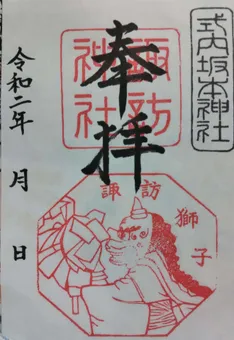 式内坂本神社
奉拝
諏訪神社
令和二年 月 日
諏訪
獅子